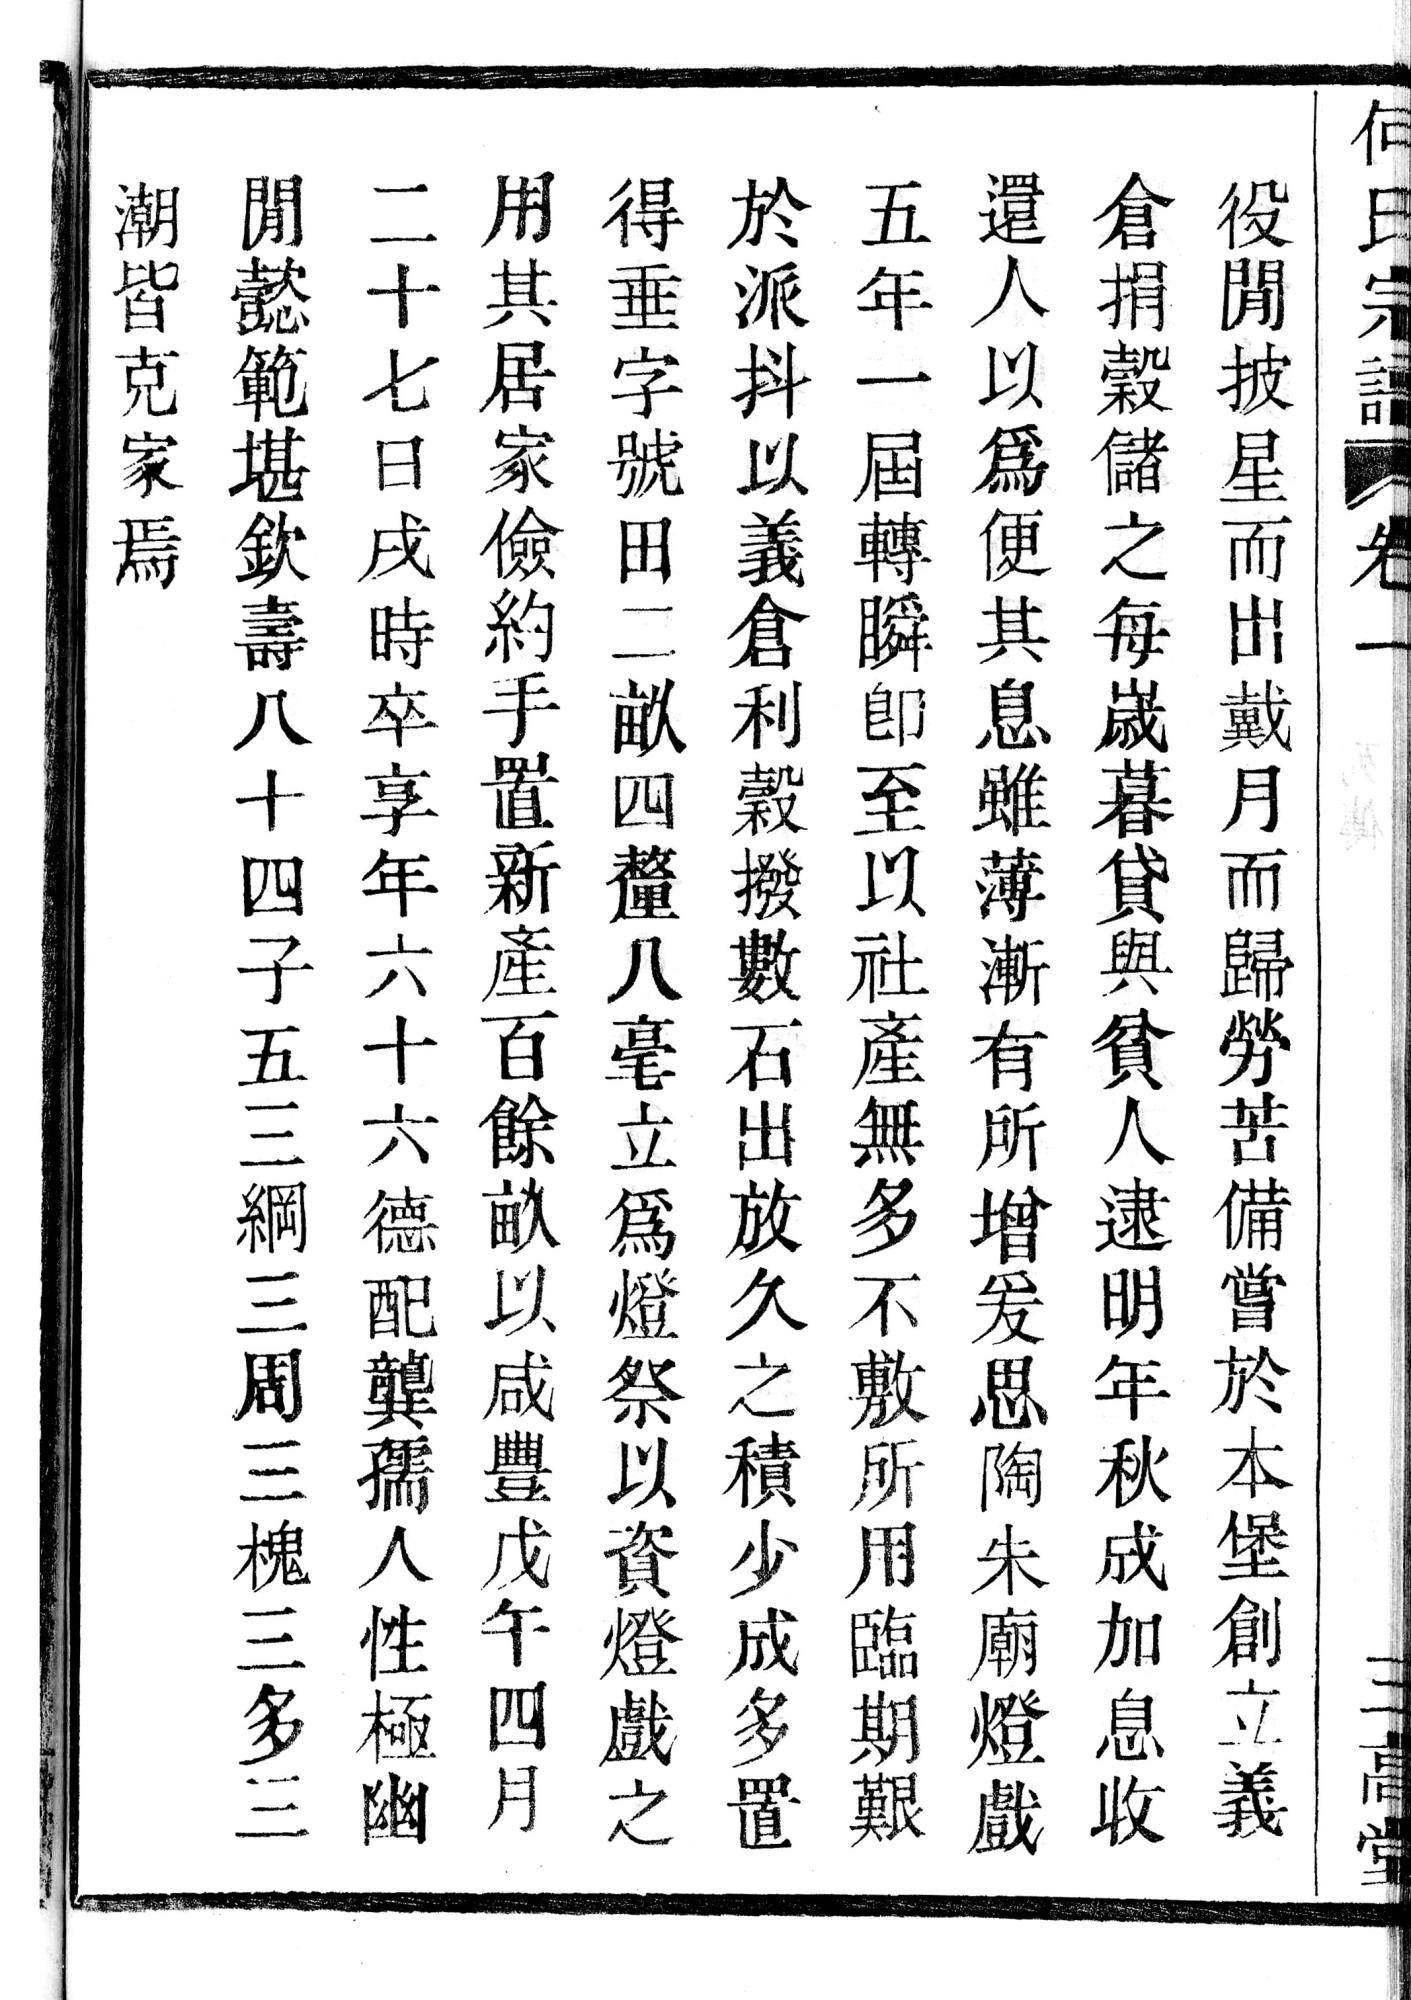 何氏宗譜 卷一 三高堂
役閒披星而出戴月而歸勞苦備嘗於本堡創立義
倉捐穀儲之每歲暮貸與貧人逮明年秋成加息收
還人以爲便其息雖薄漸有所增爰思陶朱廟燈戲
五年一屆轉瞬卽至以社產無多不敷所用臨期艱
於派抖以義倉利穀撥數石出放久之積少成多置
得垂字號田二畝四釐八毫立爲燈祭以資燈戲之
用其居家儉約手置新產百餘畝以咸豐戊午四月
二十七日戌時卒享年六十六德配龔孺人性極幽
閒懿範堪欽壽八十四子五三綱三周三槐三多三
潮皆克家焉